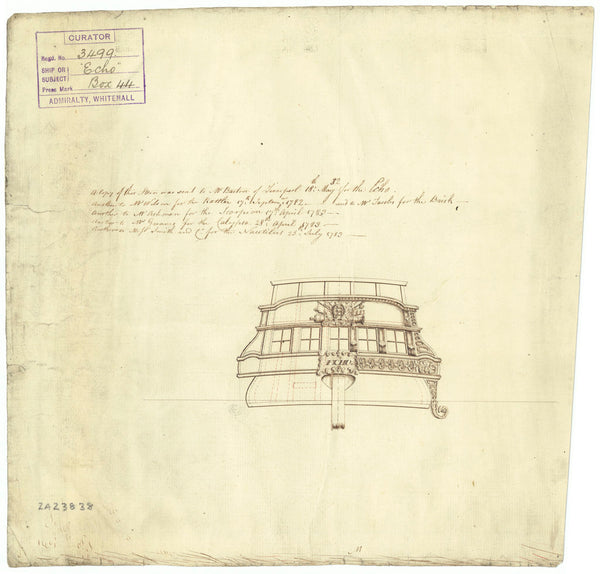 CURATOR
Regd. No. 3499
SHIP OR SUBJECT "Echo"
Press Mark Box 44
ADMIRALTY, WHITEHALL
A Copy of this was sent to Mr Barton of Liverpool 18th May 82 for the Echo.
Another to Mr Wilson for the Rattler 17th 1782. and a Mr for the Brisk
Another to Mr Ashman for the Scorpion 17th April 1783
to Mr Graves for the Calypso 28th April 1783
Another Messrs Smith and Co for the Nautilus 23d July 1783
ZAZ3838